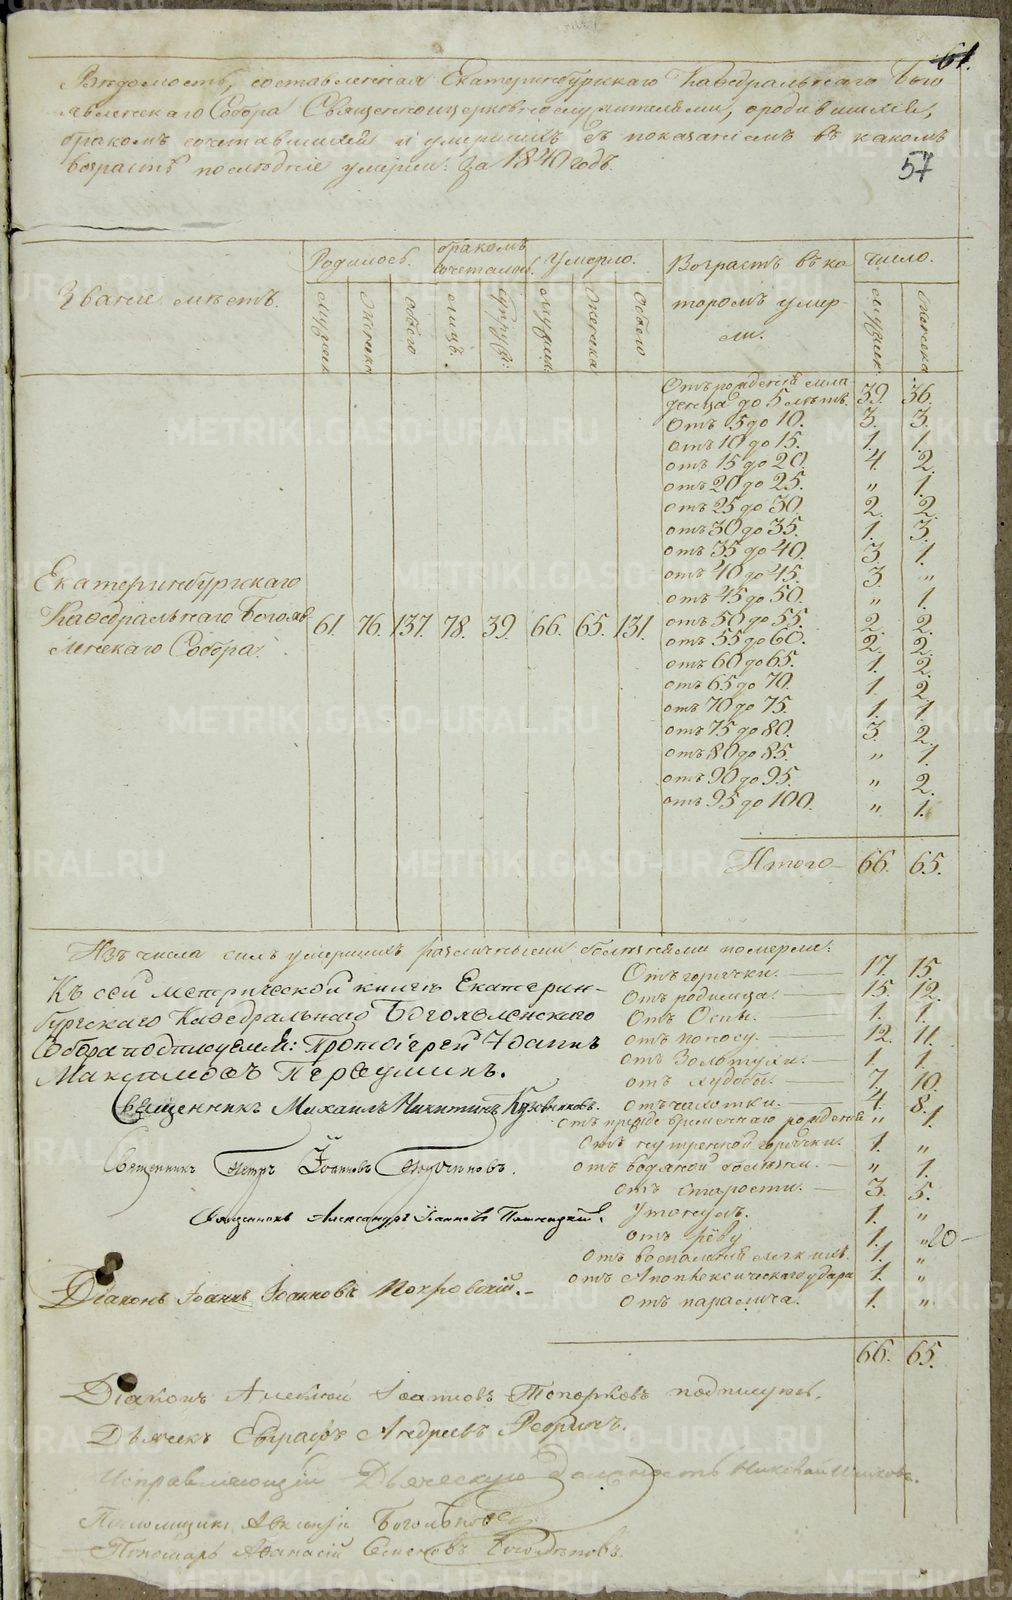 61.
Вѣдомость, составленная Екатеринбургскаго Кафедральнаго Бого
явленскаго Собора Священноцерковнослужителями, о родившихся,
бракомъ сочетавшихся и умершихъ съ показаніемъ въ какомъ
возрастѣ послѣдніе умерли. За 1840 годъ.
57
Званіе мѣстъ.
Родилось.
бракомъ сочеталось.
Умерло.
Возрастъ въ ко
торомъ умер-
ли.
Число.
Мужеск
Женска
Обоего
лицъ.
супруж:
Мужеск
Женска
Обоего
Мужеск.
Женска
Отъ рожденія мла
денца до 5 лѣтъ. 39. 36.
Отъ 5 до 10. 3. 3.
отъ 10 до 15. 1. 1.
отъ 15 до 20. 4. 2.
отъ 20 до 25. „ 1.
отъ 25 до 30. 2. 2.
отъ 30 до 35. 1. 3.
отъ 35 до 40. 3. 1.
отъ 40 до 45. 3. „
отъ 45 до 50. „ 1.
отъ 50 до 55. 2. 2.
отъ 55 до 60. 2. 2.
отъ 60 до 65. 1. 2.
отъ 65 до 70. 1. 2.
отъ 70 до 75. 1. 1.
отъ 75 до 80. 3. 2.
отъ 80 до 85. „ 1.
отъ 90 до 95. „ 2.
отъ 95 до 100. „ 1.
Екатеринбургскаго
Кафедральнаго Богояв
ленскаго Собора. 61. 76. 137. 78. 39. 66. 65. 131.
Итого 66. 65.
Изъ числа сихъ умершихъ различными болѣзнями померли:
Отъ горячки. 17. 15.
Отъ родимца. 15. 12.
Отъ Оспы. 1. 1.
отъ поносу. 12. 11.
отъ Золотухи. 1. 1.
отъ худобы. 7. 10.
отъ чахотки. 4. 8.
отъ прежде временнаго рожденія „ 1.
отъ нутренной горячки. 1. „
отъ водяной болѣзни. „ 1.
отъ старости. 3. 5.
Утонулъ. 1. „
отъ рёву 1. „
20
отъ воспаленія легкихъ. 1. „
отъ Апоплексическаго удара 1. „
отъ паралича. 1. „
66. 65.
Къ сей метрической книгѣ Екатерин-
бургскаго Кафедральнаго Богоявленскаго
Собора подписуемся: Протоіерей Іоаннъ
Максимовъ Первушинъ.
Священникъ Михаилъ Никитинъ Кузовниковъ.
Священникъ Петръ Іоанновъ
Священникъ Александръ Іоанновъ
Діаконъ Іоаннъ Іоанновъ Покровскій.
Діаконъ Алексѣй Іоанновъ Топорковъ подписуюсь.
Дьячекъ Евграфъ Андреевъ
Исправляющій Дьяческую должность Николай
Аѳанасій Семеновъ
METRIKI.GASO-URAL.RU